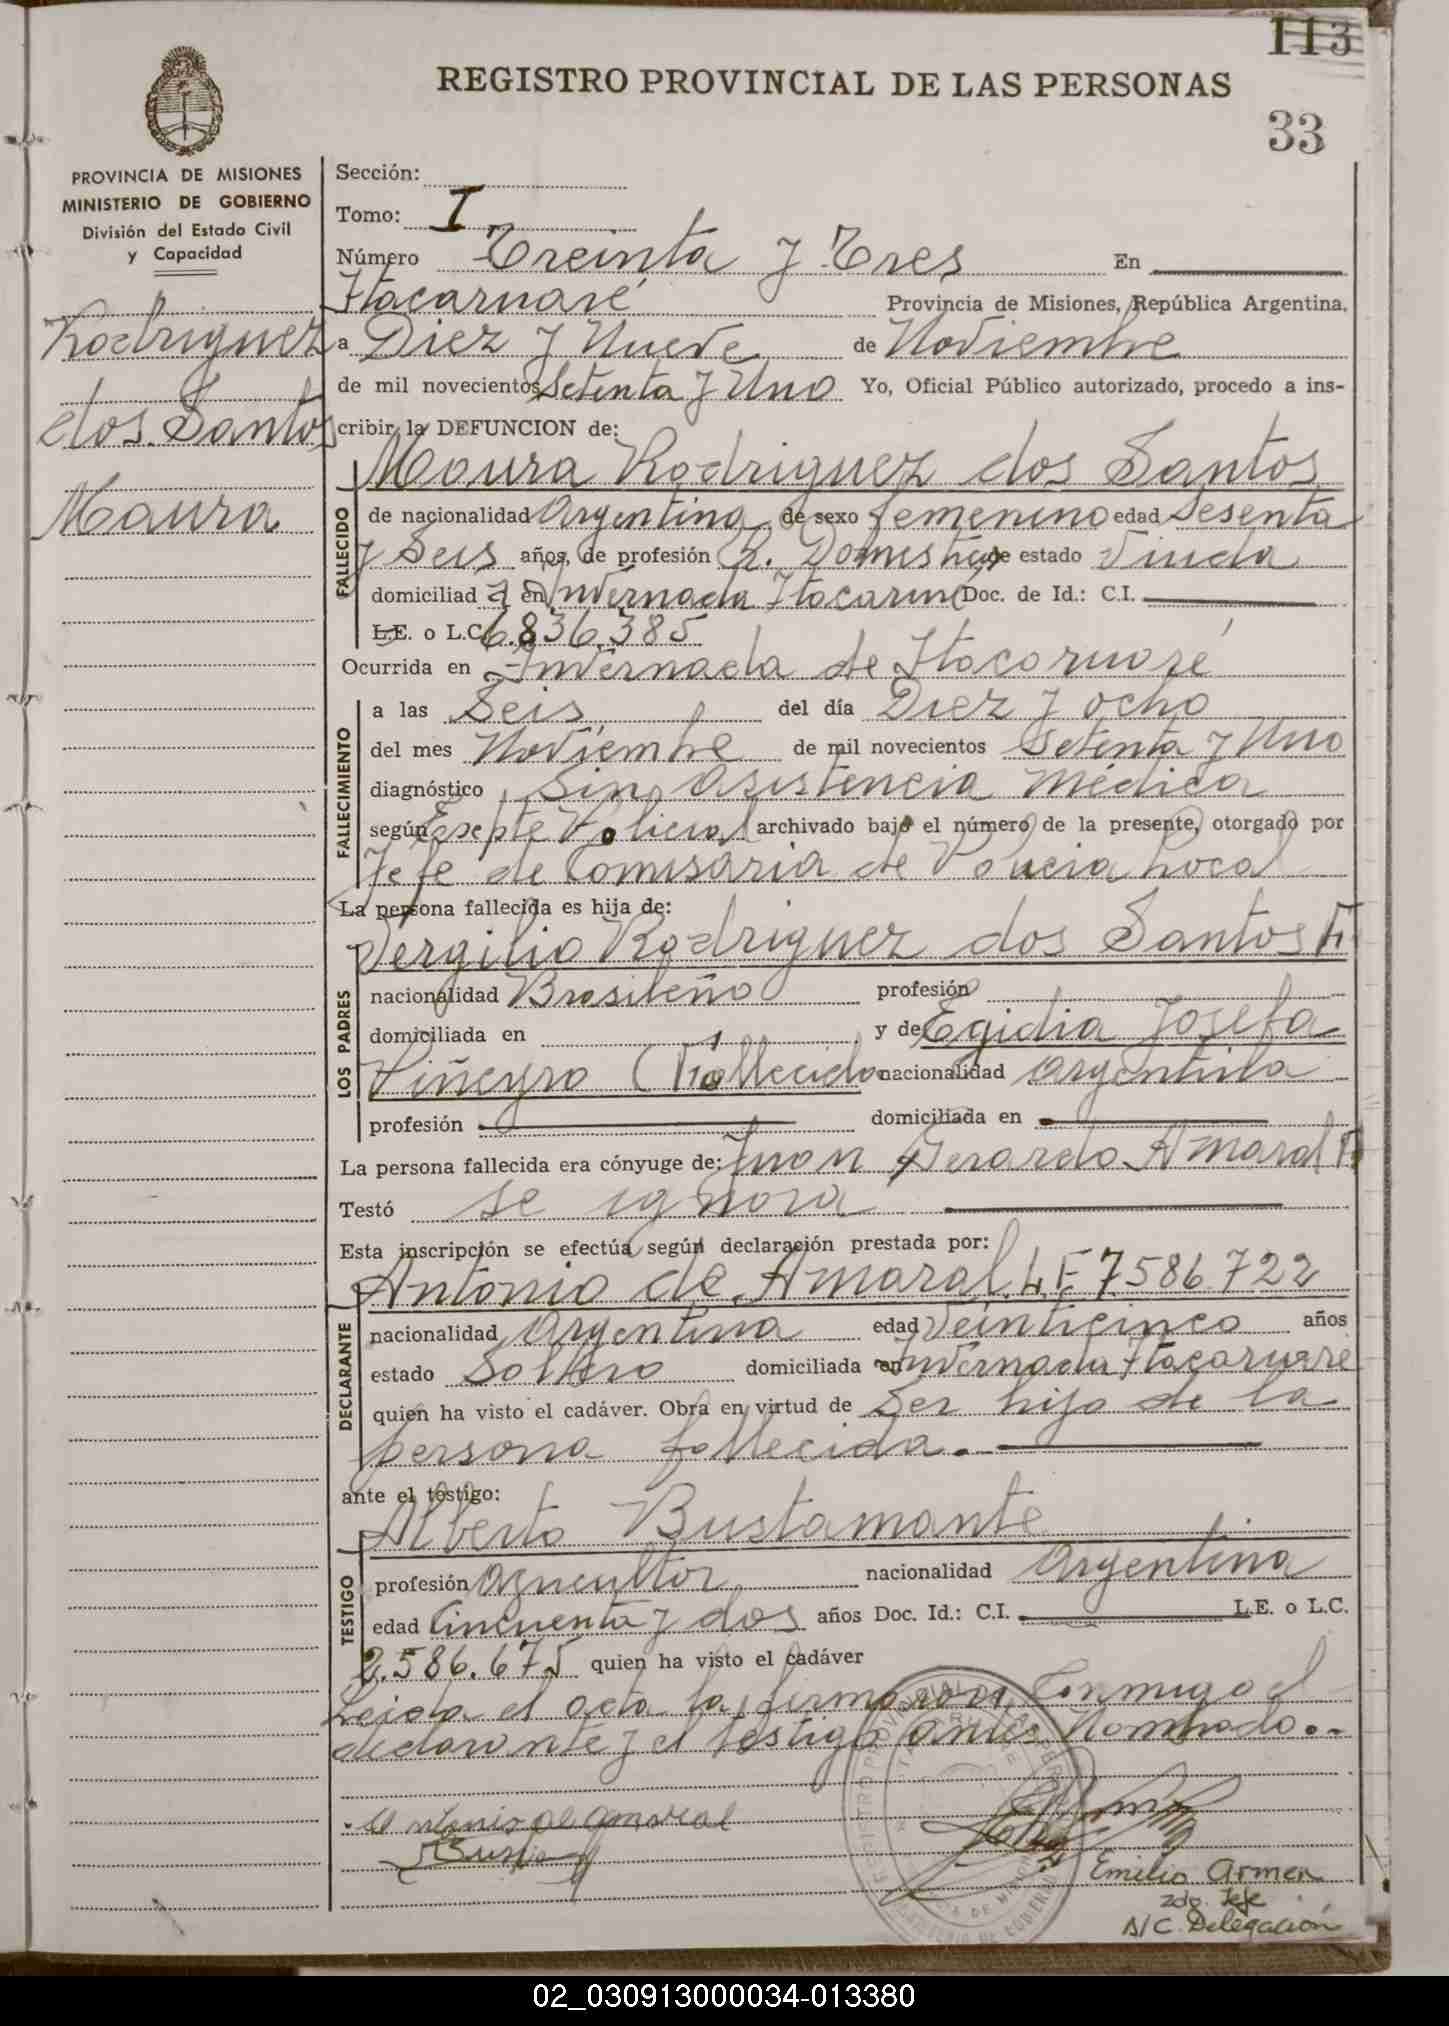 113
REGISTRO PROVINCIAL DE LAS PERSONAS
33
PROVINCIA DE MISIONES
MINISTERIO DE GOBIERNO
División del Estado Civil
y Capacidad
Rodriguez
dos Santos
Maura
Sección:
Tomo: I
Número Treinta y Tres En
Itacaruaré Provincia de Misiones, República Argentina,
a Diez y Nueve de Noviembre
de mil novecientos Setenta y Uno Yo, Oficial Público autorizado, procedo a ins-
cribir la DEFUNCION de:
Maura Rodriguez dos Santos
FALLECIDO
de nacionalidad Argentina de sexo femenino edad Sesenta
y Seis años, de profesión Q. Domesticos de estado Viuda
domiciliad a en Invernada Itacaruaré Doc. de Id.: C.I.
L.E. o L.C. 6.836.385
Ocurrida en Invernada de Itacaruaré
FALLECIMIENTO
a las Seis, del día Diez y ocho
del mes Noviembre de mil novecientos Setenta y Uno
diagnóstico Sin asistencia médica
según Expte Policial archivado bajo el número de la presente, otorgado por
Jefe de Comisaria de Policia Local
La persona fallecida es hija de:
Vergilio Rodriguez dos Santos F.
LOS PADRES
nacionalidad Brasileño profesión
domiciliada en y de Egidia Josefa
Piñeyro (Fallecido nacionalidad argentina
profesión domiciliada en
La persona fallecida era cónyuge de: Juan Gerardo Amaral F.
Testó se ignora
Esta inscripción se efectúa según declaración prestada por:
Antonio de Amaral L.E. 7.586.722
DECLARANTE
nacionalidad Argentina edad Veinticinco años
estado Soltero domiciliada en Invernada Itacaruare
quien ha visto el cadáver. Obra en virtud de Ser hijo de la
persona fallecida.
ante el testigo:
Alberto Bustamante
TESTIGO
profesión Agricultor nacionalidad Argentina
edad Cincuenta y dos años Doc. Id.: C.I. L.E. o L.C.
2.586.675 quien ha visto el cadáver
Leida el acta la firmaron Conmigo el
declarante y el testigo antes Nombrado.-
Antonio de amaral
Emilio Armen
2do. Jefe
A/C. Delegación
02_030913000034-013380